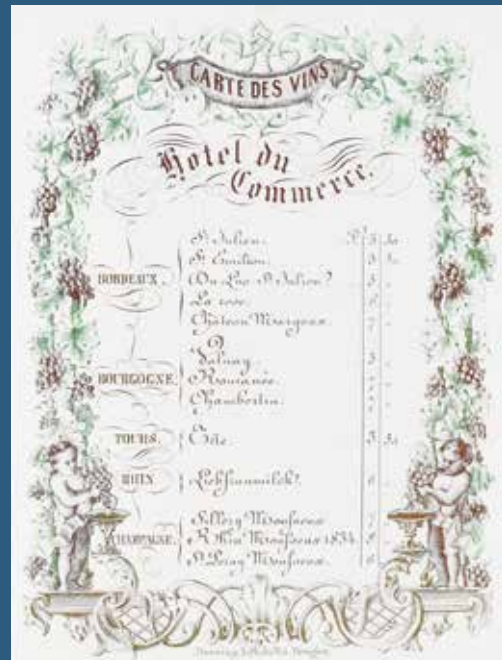 CARTE DES VINS
Hotel du
Commerce.
BORDEAUX.
St Julien. 3 50
St Emilion. 3
St Julien 5
La rose. 6
Château Margaux. 7
BOURGOGNE.
Volnay. 5
Romanée.
Chambertin.
TOURS.
Côte. 3 50
RHIN
Liebfraumilch. 6
CHAMPAGNE.
Sillery Mousseux 7
Mousseux 1834. 8
Mousseux. 6